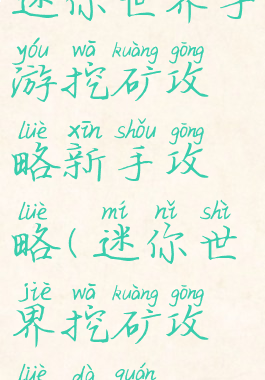 迷你世界手
yóu wā kuàng gōng
游挖矿攻
lüè xīn shǒu gōng
略新手攻
lüè mí nǐ shì
略(迷你世
jiè wā kuàng gōng
界挖矿攻
lüè dà quán